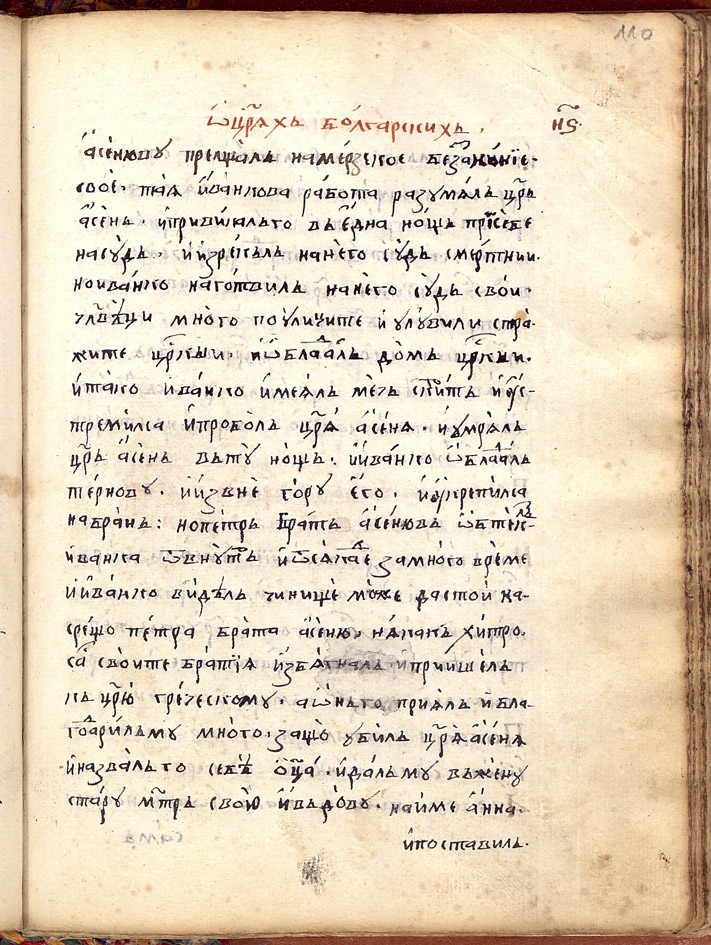 110
ѽ цр҃ѧхъ болгарскихъ. н҃ѕ.
а҆сѣнюву прелщалъ на мерзское безаконїе.
свое. таѧ и҆ванкова работа разумѧлъ цр҃ь
а҆сѣнь. и҆ привикалъ го въ е҆дна нощь при себе
на судъ. и҆ и҆зрекълъ на него судъ смертнии.
но иванко наготвилъ на него судъ свои.
чл҃вѣци много по уличите и҆ улувили стра-
жите цр҃скыи. и҆ ѡ҆блада́лъ домъ цр҃скыи.
и҆ тако и҆ванко и҆меѧлъ мечъ скритъ и҆ ꙋс-
тремилсѧ и҆ проболъ цр҃ѧ а҆сенѧ. и҆ умрѧлъ
цр҃ь а҆сѣнь въ ту нощь. и҆ и҆ванко ѡ҆бладалъ
тернову. и҆ и҆звнѣ гору е҆го. и҆ ꙋкрепилсѧ
на брань: но петръ братъ а҆сѣновъ
и҆ванка ѿвнутръ и҆ за много време
и҆ и҆ванко видѣлъ чи нище може да стои на-
срещо петра брата а҆сѣню, никакъ хитро.
съ своите братїѧ и҆збѧгналъ и҆ пришелъ
къ цр҃ю греческому. а ѡ҆нъ го приѧлъ и҆ бла-
годарилъ му много. защо убилъ цр҃ѧ а҆сенѧ
и҆ назвалъ го себѣ ѻ҆ц҃а. и҆ далъ му въ жену
стару мт҃ръ свою и҆ въдову. на име а҆нна.
и҆ поставилъ.